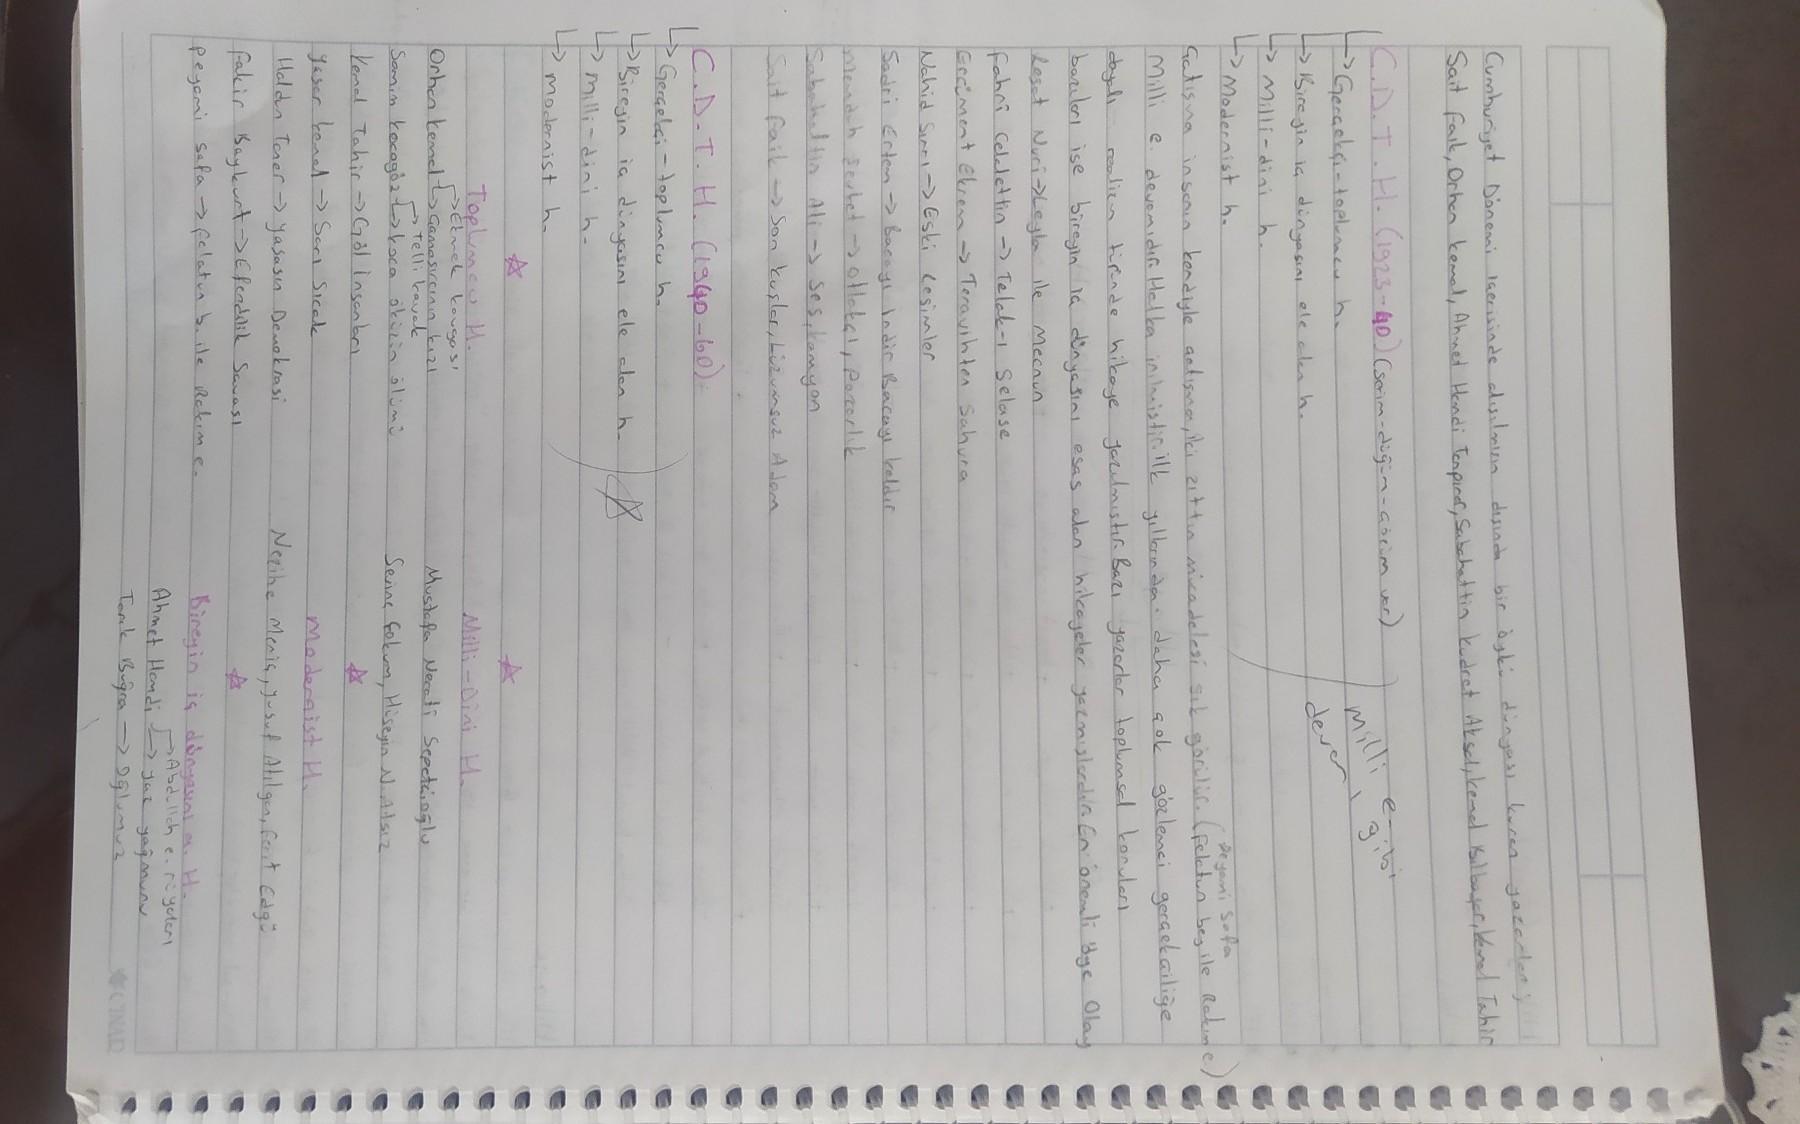 Cumhuriyet Dönemi içerisinde alışılmışın dışında bir öykü dünyası kuran yazarlar;
Sait Faik, Orhan Kemal, Ahmet Hamdi Tanpınar, Sabahattin Kudret Aksal, Kemal Bilbaşar, Kemal Tahir
C.D.T.H. (1923-40) (serim-düğüm-çözüm var)
↳ Gerçekçi-toplumcu h.
↳ Bireyin iç dünyasını ele alan h.
↳ Milli-dini h.
↳ Modernist h.
Milli e-ibi
devam gibi
Çatışma insanın kendiyle çatışma, iki zıttın mücadelesi sık görülür. (Felatun bey ile Rakım e)
Peyami Safa
Milli e. devamıdır. Halka inilmiştir. İlk yıllarında daha çok gözlemci gerçekçiliğe
dayalı realizm türünde hikaye yazılmıştır. Bazı yazarlar toplumsal konuları
bazıları ise bireyin iç dünyasını esas alan hikayeler yazmışlardır. En önemli öge Olay
Reşat Nuri → Leyla ile Mecnun
Fahri Celalettin → Telak-ı Selase
Ercüment Ekrem → Teravihten Sahura
Nahid Sırrı → Eski Resimler
Sadri Ertem → Bacayı İndir Bacayı Kaldır
Memduh Şevket → Otlakçı, Pazarlık
Sabahattin Ali → Ses, Kamyon
Sait Faik → Son kuşlar, Lüzumsuz Adam
C.D.T.H. (1940-60)
↳ Gerçekçi-toplumcu h.
↳ Bireyin iç dünyasını ele alan h.
↳ Milli-dini h.
↳ Modernist h.
Toplumcu H.
Orhan Kemal → Ekmek kavgası
→ Çamaşırcının kızı
Samim Kocagöz → Telli kavak
→ Koca öküzün ölümü
Kemal Tahir → Göl İnsanları
Yaşar Kemal → Sarı Sıcak
Haldun Taner → Yaşasın Demokrasi
Fakir Baykurt → Efendilik Savaşı
Peyami Safa → Felatun b. ile Rakım e.
Milli-Dini H.
Mustafa Necati Sepetçioğlu
Sevinç Çokum, Hüseyin N. Atsız
Modernist H.
Nezihe Meriç, Yusuf Atılgan, Ferit Edgü
Bireyin iç dünyasını a. H.
Ahmet Hamdi → Abdullah e. rüyaları
→ Yaz yağmuru
Tarık Buğra → Oğlumuz